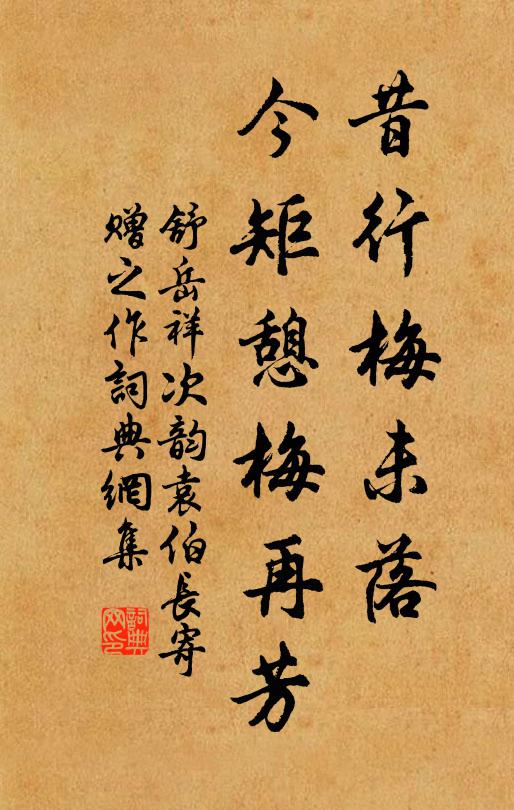 昔行梅未落
今矩憩梅再芳
舒岳祥次韵袁伯長寄
贈之作詞典網集
詞典网印